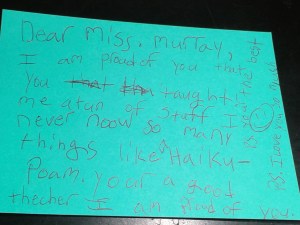 Dear Miss. Murray,
I am proud of you that
you taught!
me atun of stuff I
never noow so many
things like Haiku-
Poam. your a good
thecher I am Proud of you.